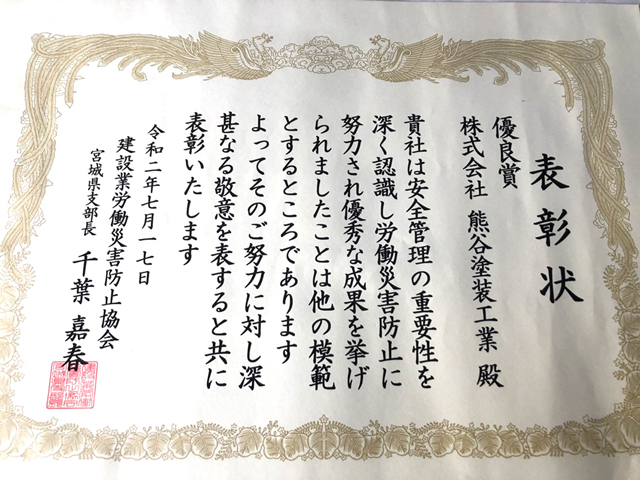 表彰状
優良賞
株式会社 熊谷塗装工業 殿
貴社は安全管理の重要性を
深く認識し労働災害防止に
努力され優秀な成果を挙げ
られましたことは他の模範
とするところであります
よってそのご努力に対し深
甚なる敬意を表すると共に
表彰いたします
令和二年七月一七日
建設業労働災害防止協会
宮城県支部長 千葉 嘉春